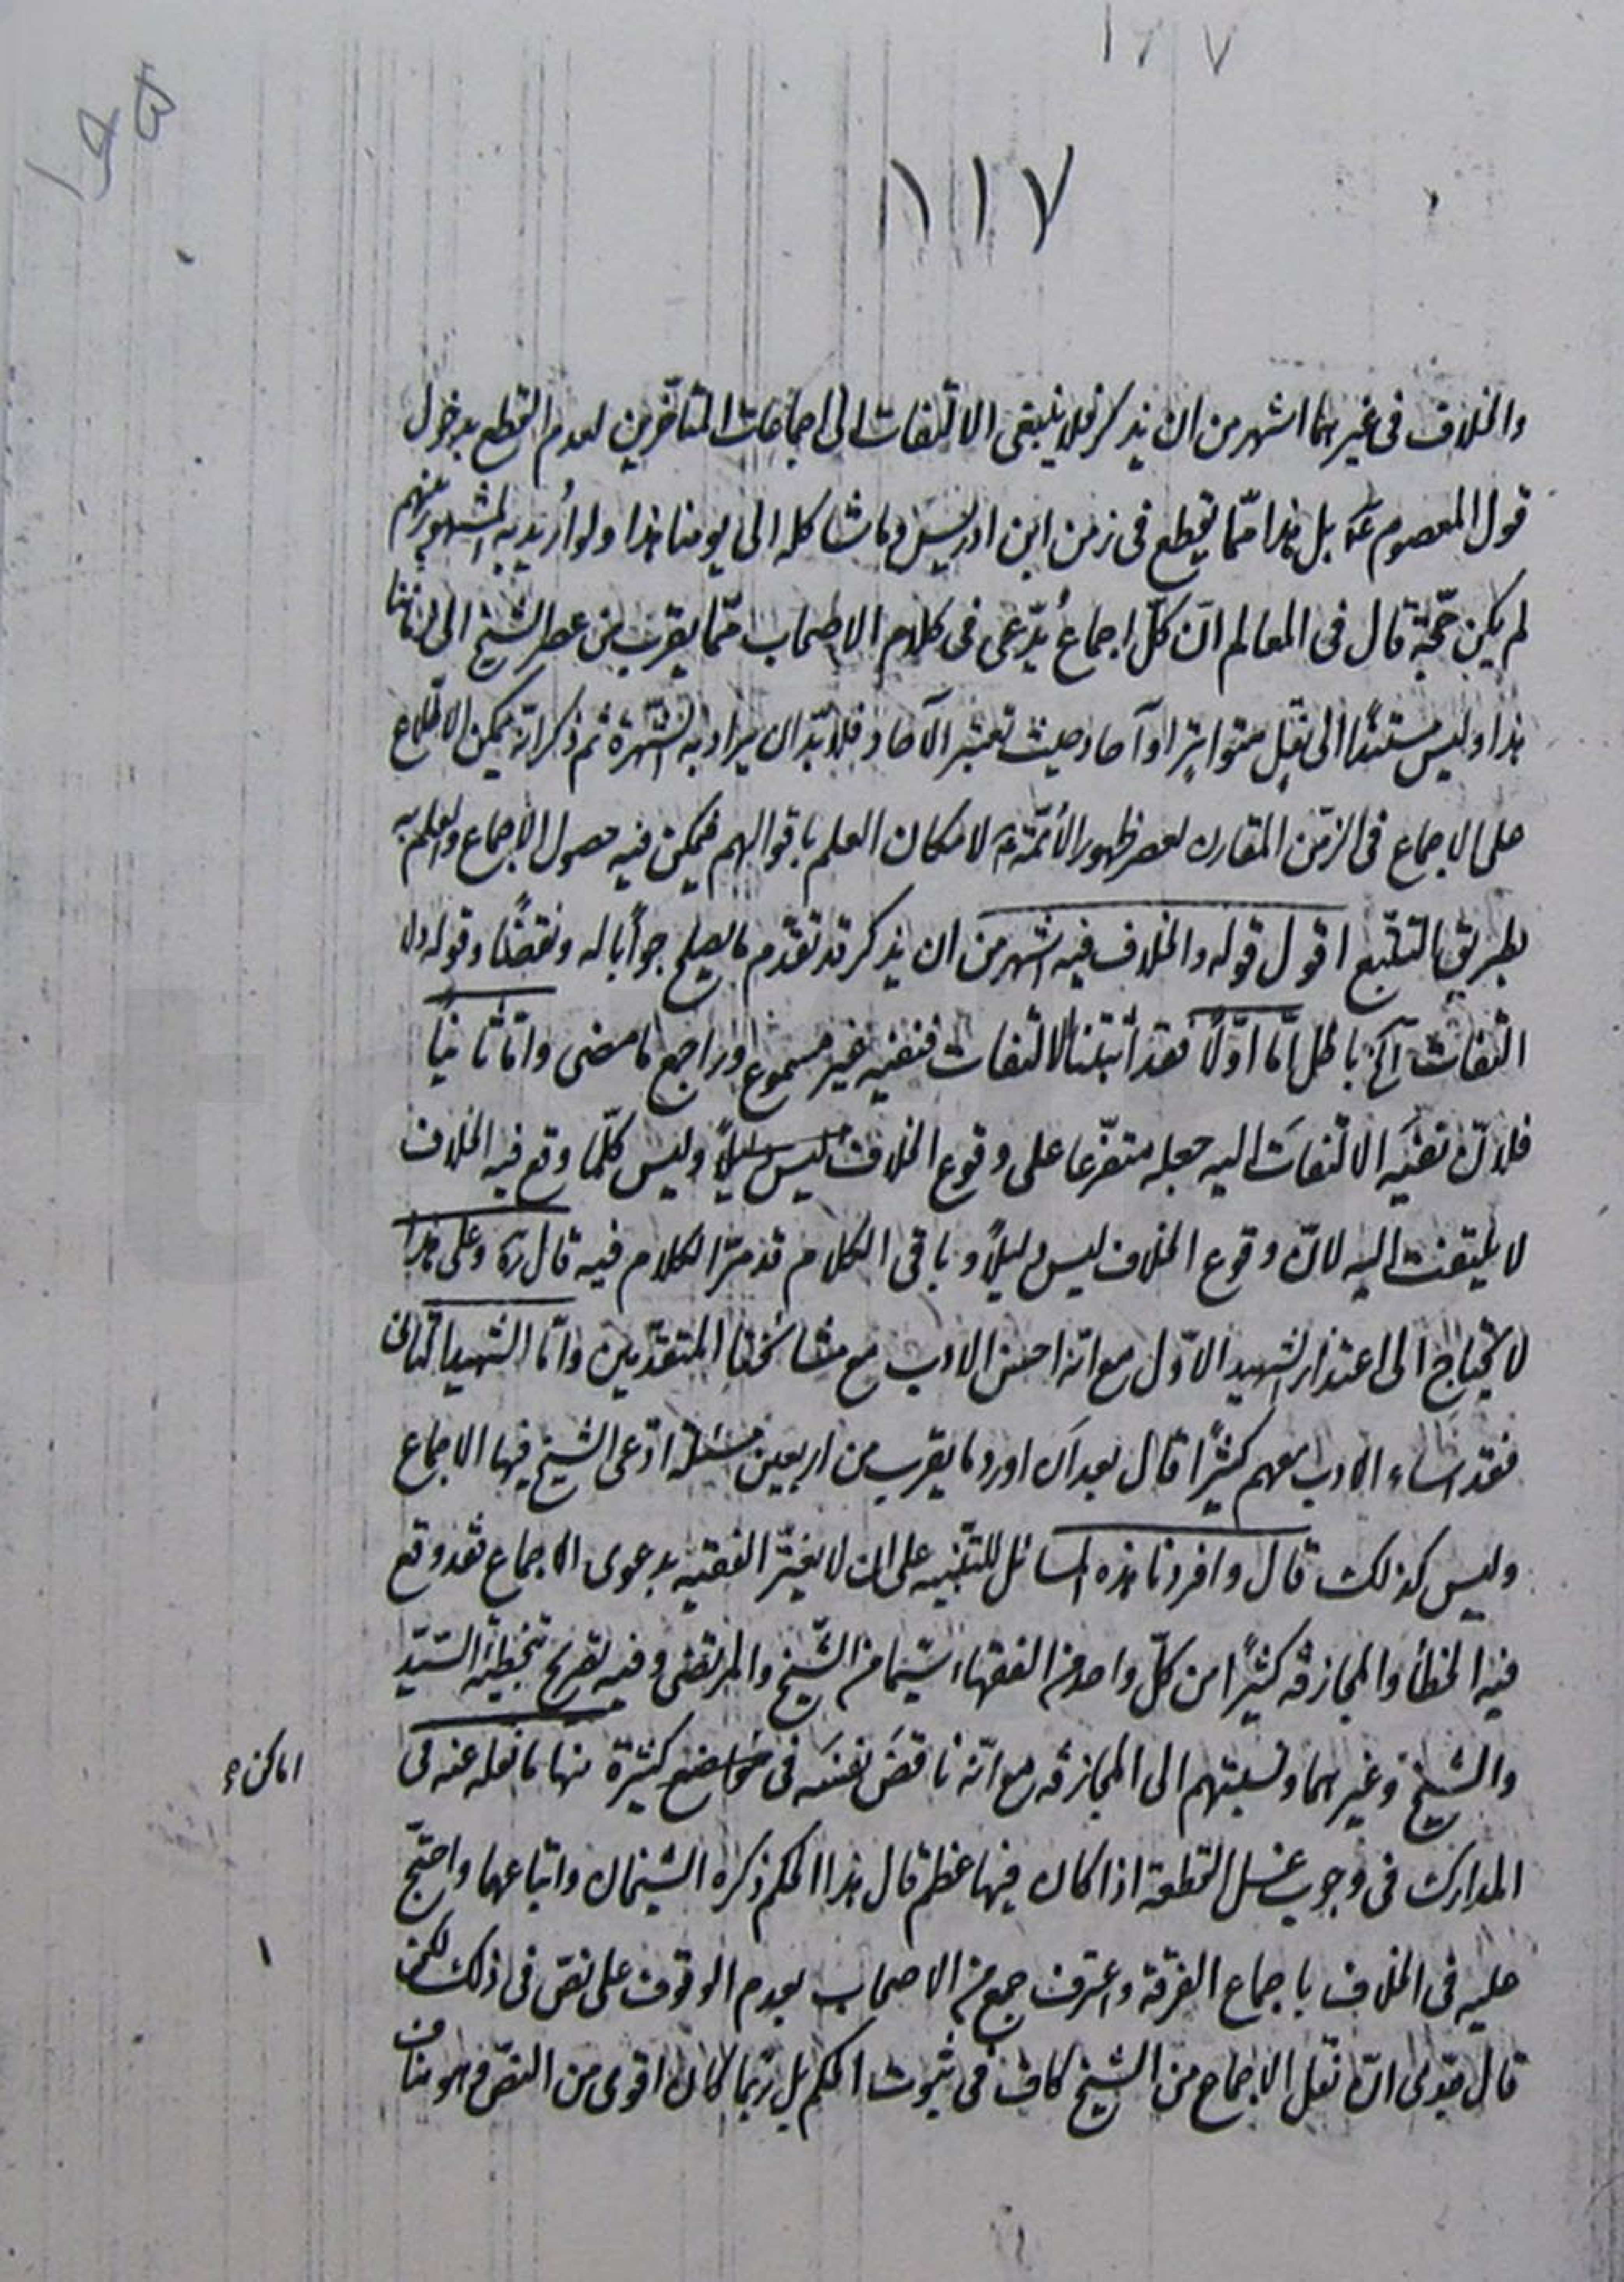 ١٢٧
١٤٥
١١٧
والخلاف فی غیرهما اشهر من ان یذکر فلا ینبغی الالتفات الی اجماعات المتأخّرین لعدم القطع بدخول
قول المعصوم عَ بل هذا ممّا یقطع فی زمن ابن ادریس وما شاکله الی یومنا هذا ولو اُرید به المشهور بینهم
لم یکن حجّة قال فی المعالم انّ کلّ اجماع یُدّعی فی کلام الاصحاب ممّا یقرب من عصر الشیخ الی زماننا
هذا ولیس مستنداً الی نقل متواتر او آحاد حیث تعتبر الآحاد فلا بدّ ان یراد به الشهرة ثم ذکر انّه یمکن الاطّلاع
علی الاجماع فی الزمن المقارن لعصر ظهور الائمّة ع لامکان العلم باقوالهم فیمکن فیه حصول الاجماع والعلم به
بطریق التتبّع اقول قوله والخلاف فیه اشهر من ان یذکر قد تقدّم ما یصلح جواباً له ونقضاً وقوله ولا
التفات آلخ باطل امّا اوّلاً فقد اثبتنا الالتفات فنفیه غیر مسموع وراجع ما مضی وامّا ثانیاً
فلانّ نفیَه الالتفاتَ الیه جعله متفرّعا علی وقوع الخلاف ولیس کلّما وقع فیه الخلاف
لا یلتفت الیه لانّ وقوع الخلاف لیس دلیلاً وباقی الکلام قد مرّ الکلام فیه قال ره وعلی هذا
لا یحتاج الی اعتذار الشهید الاوّل مع انّه احسن الادب مع مشائخنا المتقدّمین وامّا الشهید الثانی
فقد اساء الادب معهم کثیراً قال بعد ان اورد ما یقرب من اربعین مسئلة ادّعی الشیخ فیها الاجماع
ولیس کذلک قال وافردنا هذه المسائل للتنبیه علی ان لا یغترّ الفقیه بدعوی الاجماع فقد وقع
فیه الخطأ والمجازفه کثیراً من کلّ واحد من الفقهاء سیّما من الشّیخ والمرتضی وفیه تصریح بتخطئة السّیّد
والشیخ وغیرهما ونسبتهم الی المجازفه مع انّه ناقضَ نفسَه فی مواضع کثیرة منها ما نقله عنه فی
اماکن
المدارک فی وجوب غسل القطعة اذا کان فیها عظم قال هذا الحکم ذکره الشیخان واتباعهما واحتجّ
علیه فی الخلاف باجماع الفرقة واعترف جمع من الاصحاب بعدم الوقوف علی نصّ فی ذلک لکن
قال جدّی انّ نقل الاجماع من الشیخ کافٍ فی ثبوت الحکم بل ربّما کان اقوی من النصّ وهو مناف